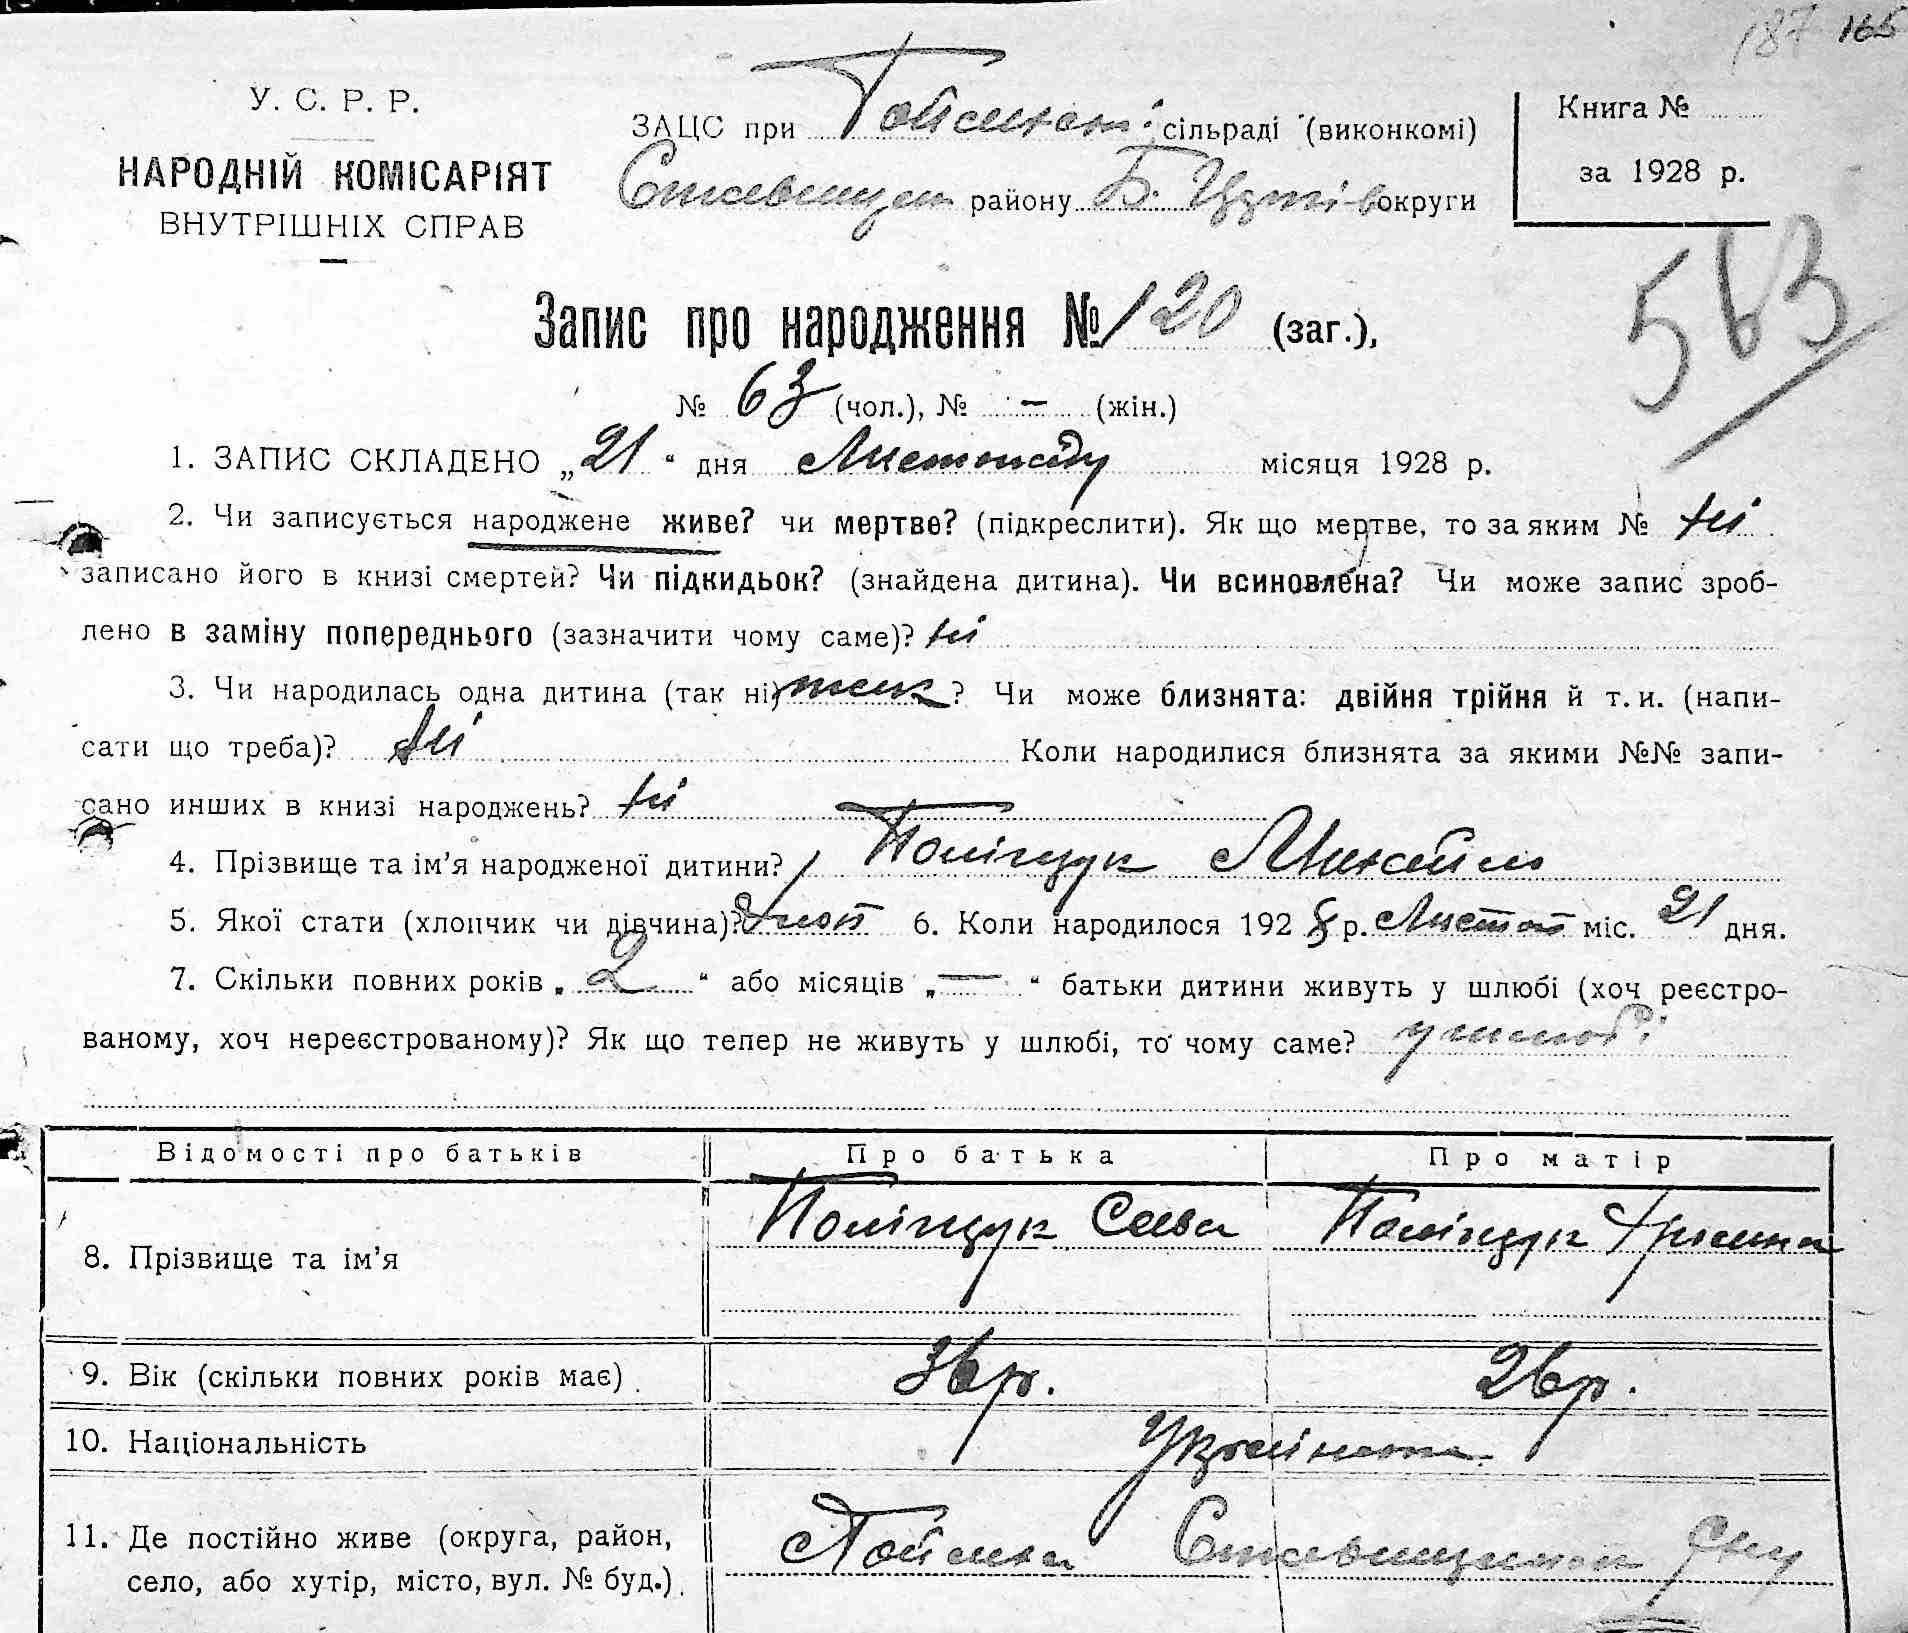 187 165
У. С. Р. Р.
НАРОДНІЙ КОМІСАРІЯТ
ВНУТРІШНІХ СПРАВ
ЗАЦС при сільраді (виконкомі)
Ставищан району Б. Церків округи
Книга №
за 1928 р.
563
Запис про народження № 120 (заг.),
№ 63 (чол.), № — (жін.)
1. ЗАПИС СКЛАДЕНО „21“ дня Листопаду місяця 1928 р.
2. Чи записується народжене живе? чи мертве? (підкреслити). Як що мертве, то за яким № ні
записано його в книзі смертей? Чи підкидьок? (знайдена дитина). Чи всиновлена? Чи може запис зроб-
лено в заміну попереднього (зазначити чому саме)? ні
3. Чи народилась одна дитина (так ні) так? Чи може близнята: двійня трійня й т. и. (напи-
сати що треба)? ні Коли народилися близнята за якими №№ запи-
сано инших в книзі народжень? ні
4. Прізвище та ім’я народженої дитини? Поліщук Михайло
5. Якої стати (хлопчик чи дівчина)? хлоп 6. Коли народилося 1928 р. Листоп міс. 21 дня.
7. Скільки повних років „2“ або місяців „—“ батьки дитини живуть у шлюбі (хоч реєстро-
ваному, хоч нереєстрованому)? Як що тепер не живуть у шлюбі, то чому саме? у шлюбі
Відомості про батьків Про батька Про матір
8. Прізвище та ім’я Поліщук Сава Поліщук
9. Вік (скільки повних років має) 36 р. 26 р.
10. Національність
11. Де постійно живе (округа, район,
село, або хутір, місто, вул. № буд.)